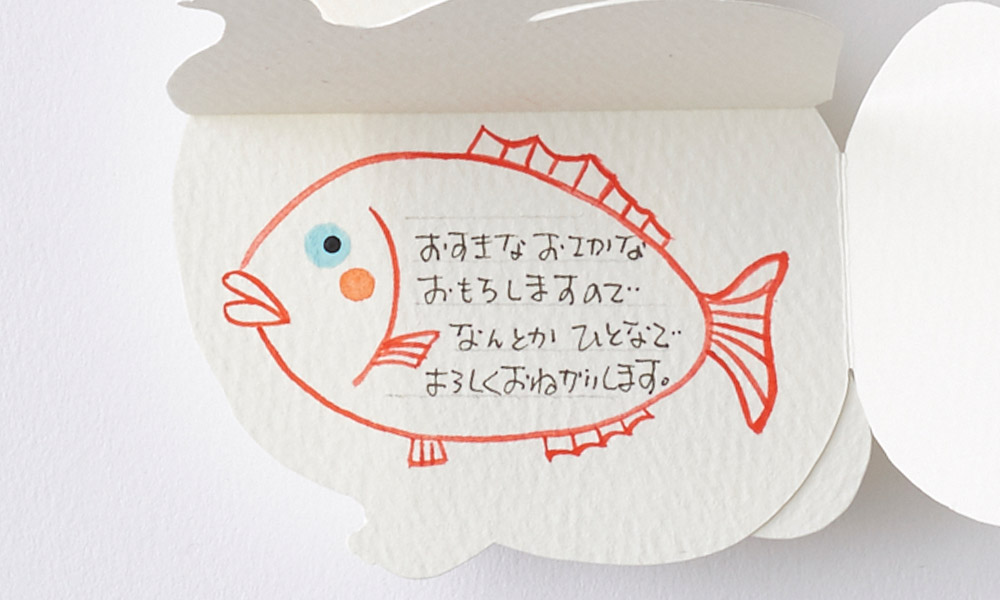 おすきな おさかな
おもちしますので
なんとか ひとなで
よろしくおねがいします。